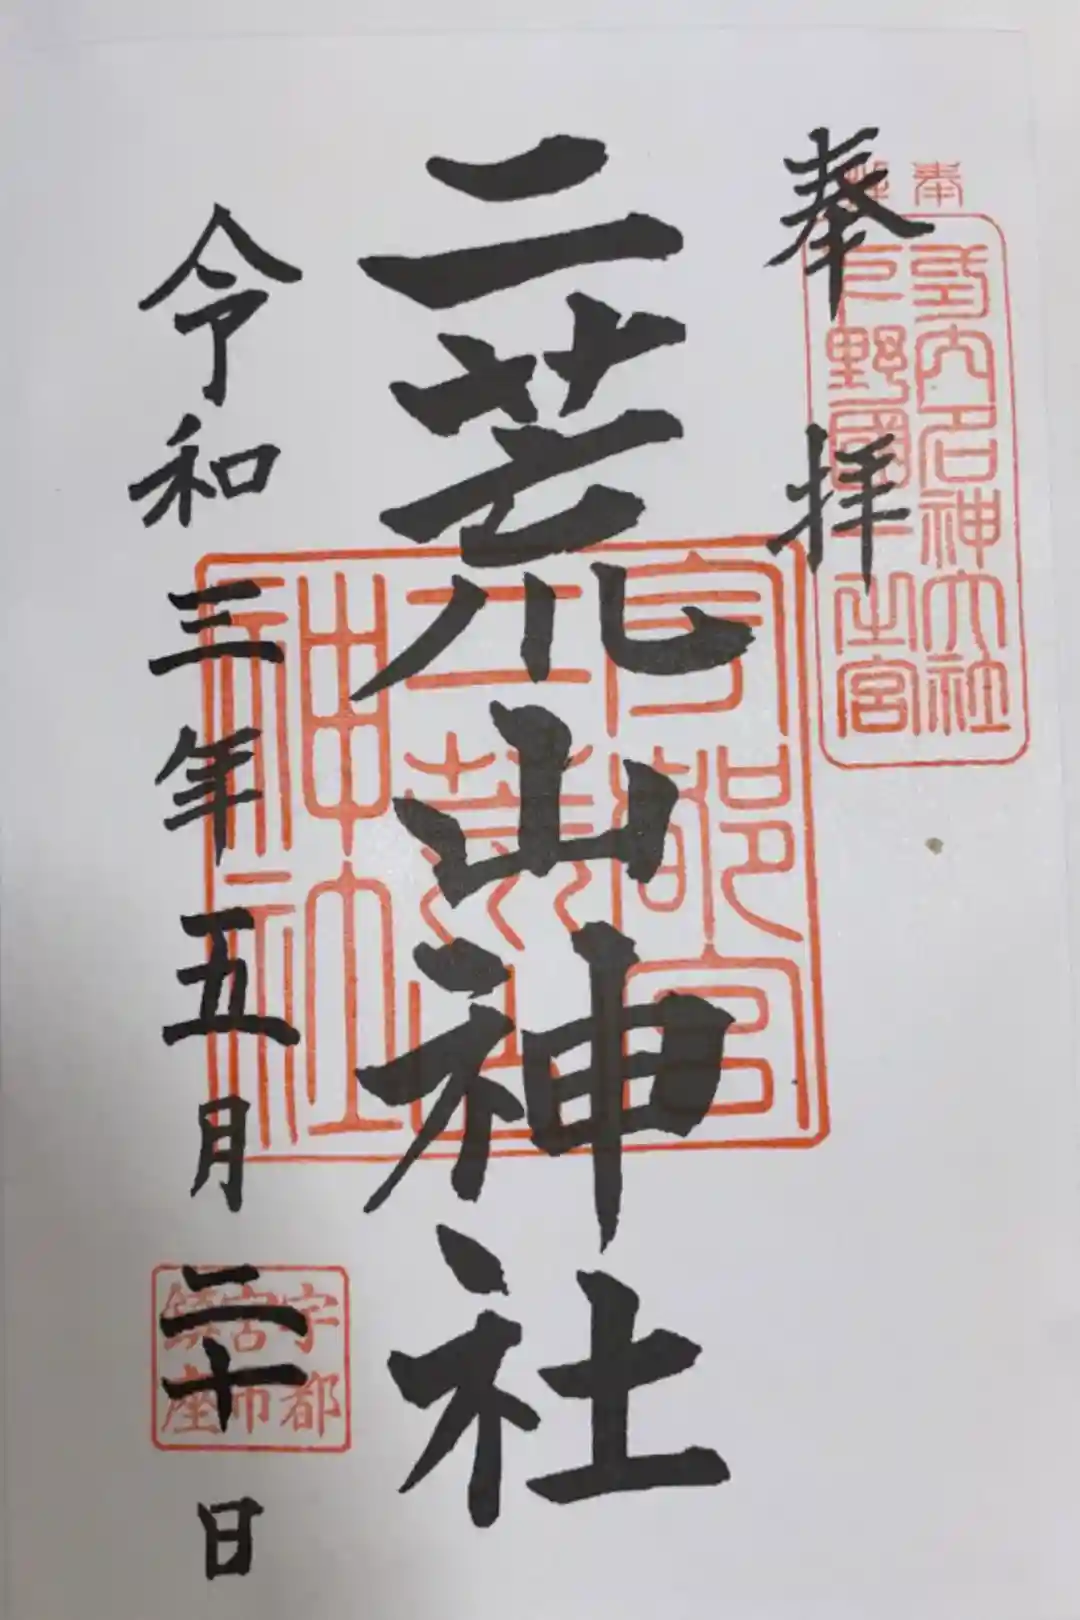 奉拝
延喜式内名神大社
下野國一之宮
二荒山神社
宇都宮
二荒山
神社
令和三年五月二十日
宇都
宮市
鎮座